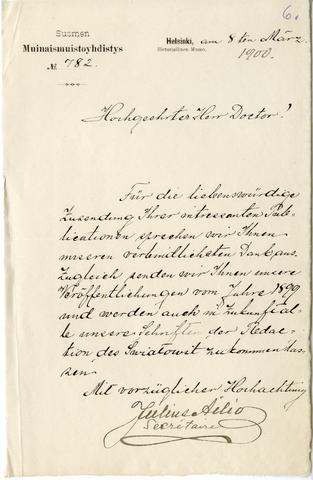 6.
Suomen
Muinaismuistoyhdistys
№ 782
Helsinki, am 8ten März
Historiallinen Museo. 1900.
Hochgeehrter Herr Doctor!
Für die liebenswürdige
Zusendung Ihrer intressanten Pub-
licationen sprechen wir Ihnen
unseren verbindlichsten Dank aus.
Zugleich senden wir Ihnen unsere
Veröffentlichungen vom Jahre 1899
und werden auch in Zukunft al-
le unsere Schriften der Redac-
tion des Swiatowit zukommen las-
sen.
Mit vorzüglicher Hochachtung
Julius Ailio
Secrétaire